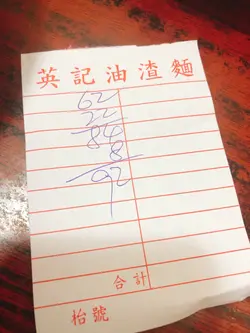 英記油渣麵
62
22
84
8
92
合計
枱號